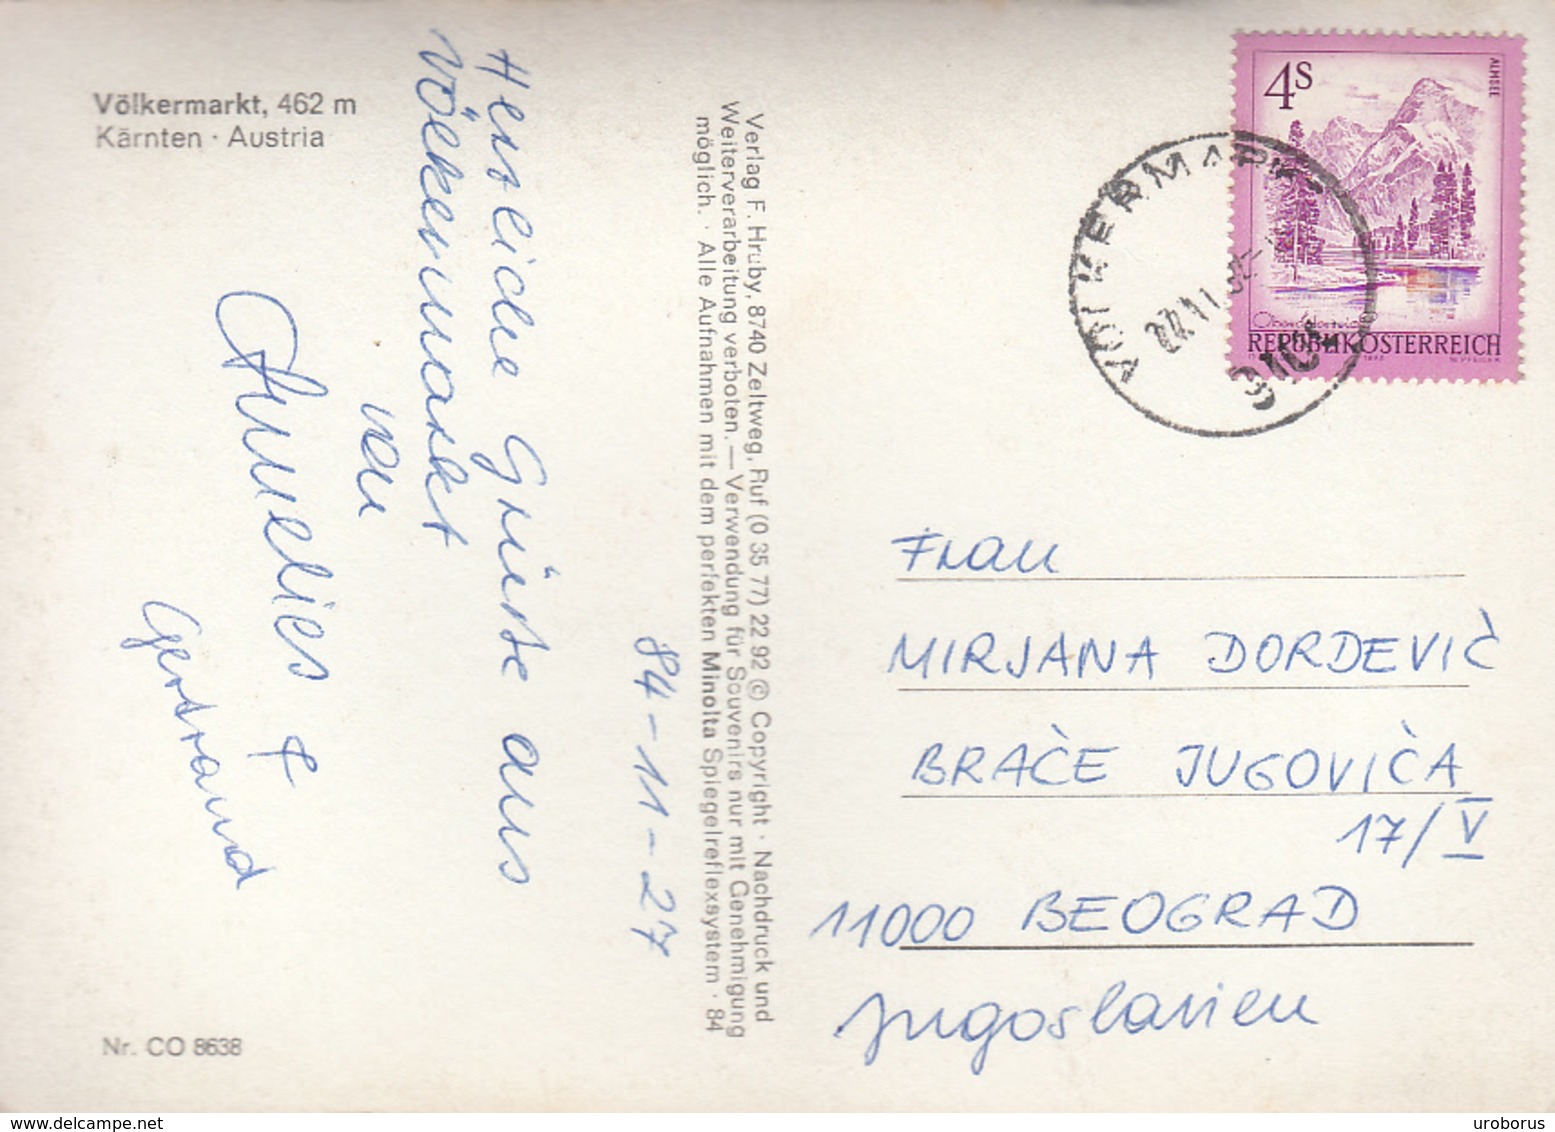 Völkermarkt, 462 m
Kärnten · Austria
Herzliche Grüße aus
Völkermarkt
von
Annelies &
Gertraud
84-11-27
Nr. CO 8638
Verlag F. Hruby, 8740 Zeltweg, Ruf (0 35 77) 22 92 © Copyright · Nachdruck und
Weiterverarbeitung verboten. — Verwendung für Souvenirs nur mit Genehmigung
möglich. · Alle Aufnahmen mit dem perfekten Minolta Spiegelreflexsystem · 84
4S
ALMSEE
Oberösterreich
REPUBLIK ÖSTERREICH
VÖLKERMARKT
27.11.
9100
Frau
MIRJANA DORĐEVIĆ
BRAĆE JUGOVIĆA
17/V
11000 BEOGRAD
Jugoslawien
uroborus